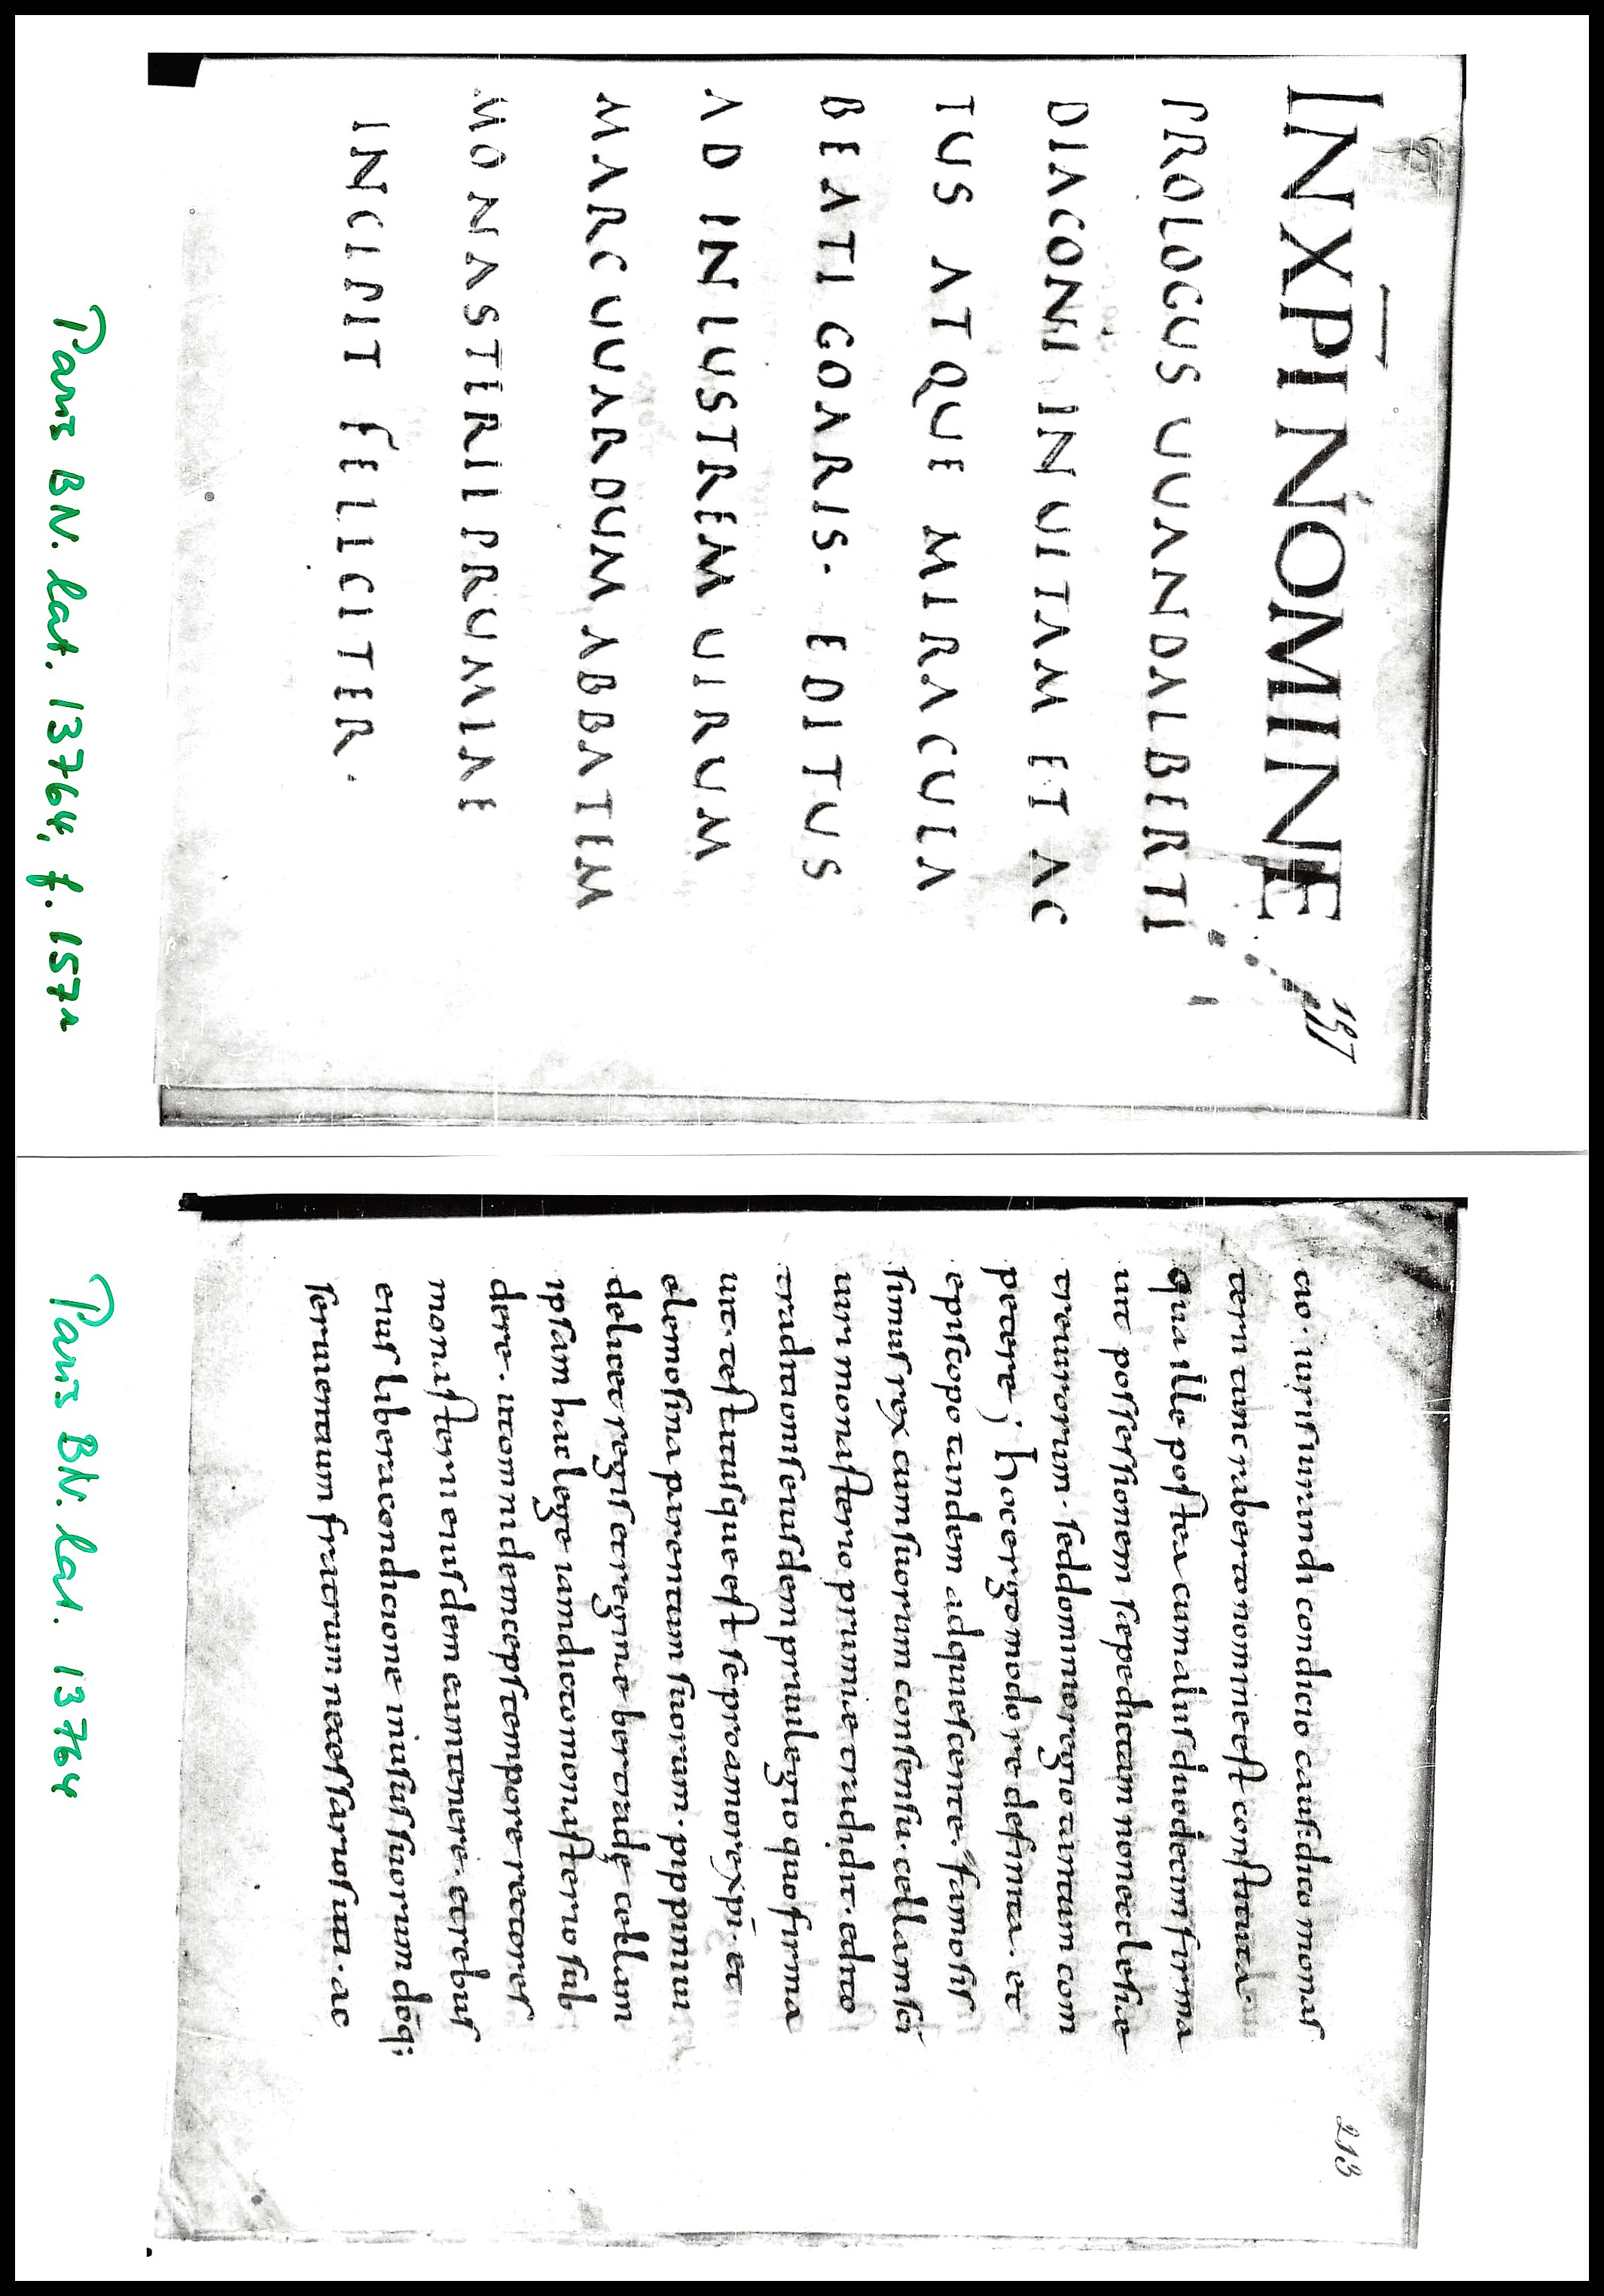 INXP̅I NOMINE
PROLOGUS UUANDALBERTI
DIACONI IN UITAM ET AC
TUS ATQUE MIRACULA
BEATI GOARIS. EDITUS
AD INLUSTREM UIRUM
MARCUUARDUM ABBATEM
MONASTERII PRUMIAE
INCIPIT FELICITER.
157
Paris BN. lat. 13764, f. 157r
213
tio. iurisiurandi condicio causidico monas
terii tunc rabertonomineest constituta.
quia ille postea cumaliis duodecim firma
uit possessionem sepedictam nonecclesiae
treuirorum. seddominioregiotantum com
petere; hocergomodo re definita. et
episcopo tandem adquiescente. famosis
simus rex cumsuorum consensu. cellamsci
uiri monasterio prumiae tradidit. edito
traditioniseiusdem priuilegio quo firma
uit. testatusqueest seproamorexp̅i. et
elemosina parentum suorum. pippinui
delicet regis etregine bertradę cellam
ipsam haclege iamdictomonasterio sub
dere. utomnideincepstempore rectores
monasterii eiusdem eamtenere. etrebus
eius liberacondicione inusus suorum dō q;
seruientium fratrum necessariosuti. ac
Paris BN. lat. 13764